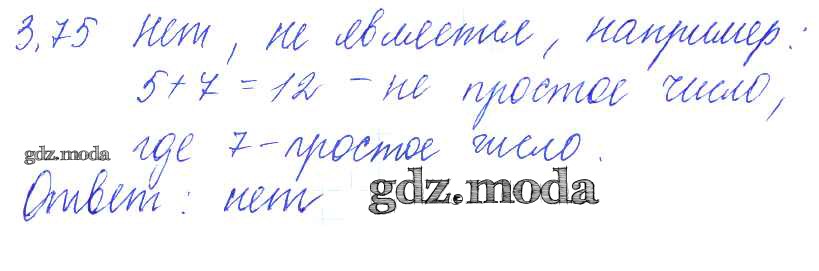 3.75 Нет, не является, например:
5+7=12 - не простое число,
gdz.moda где 7-простое число.
Ответ: нет gdz.moda